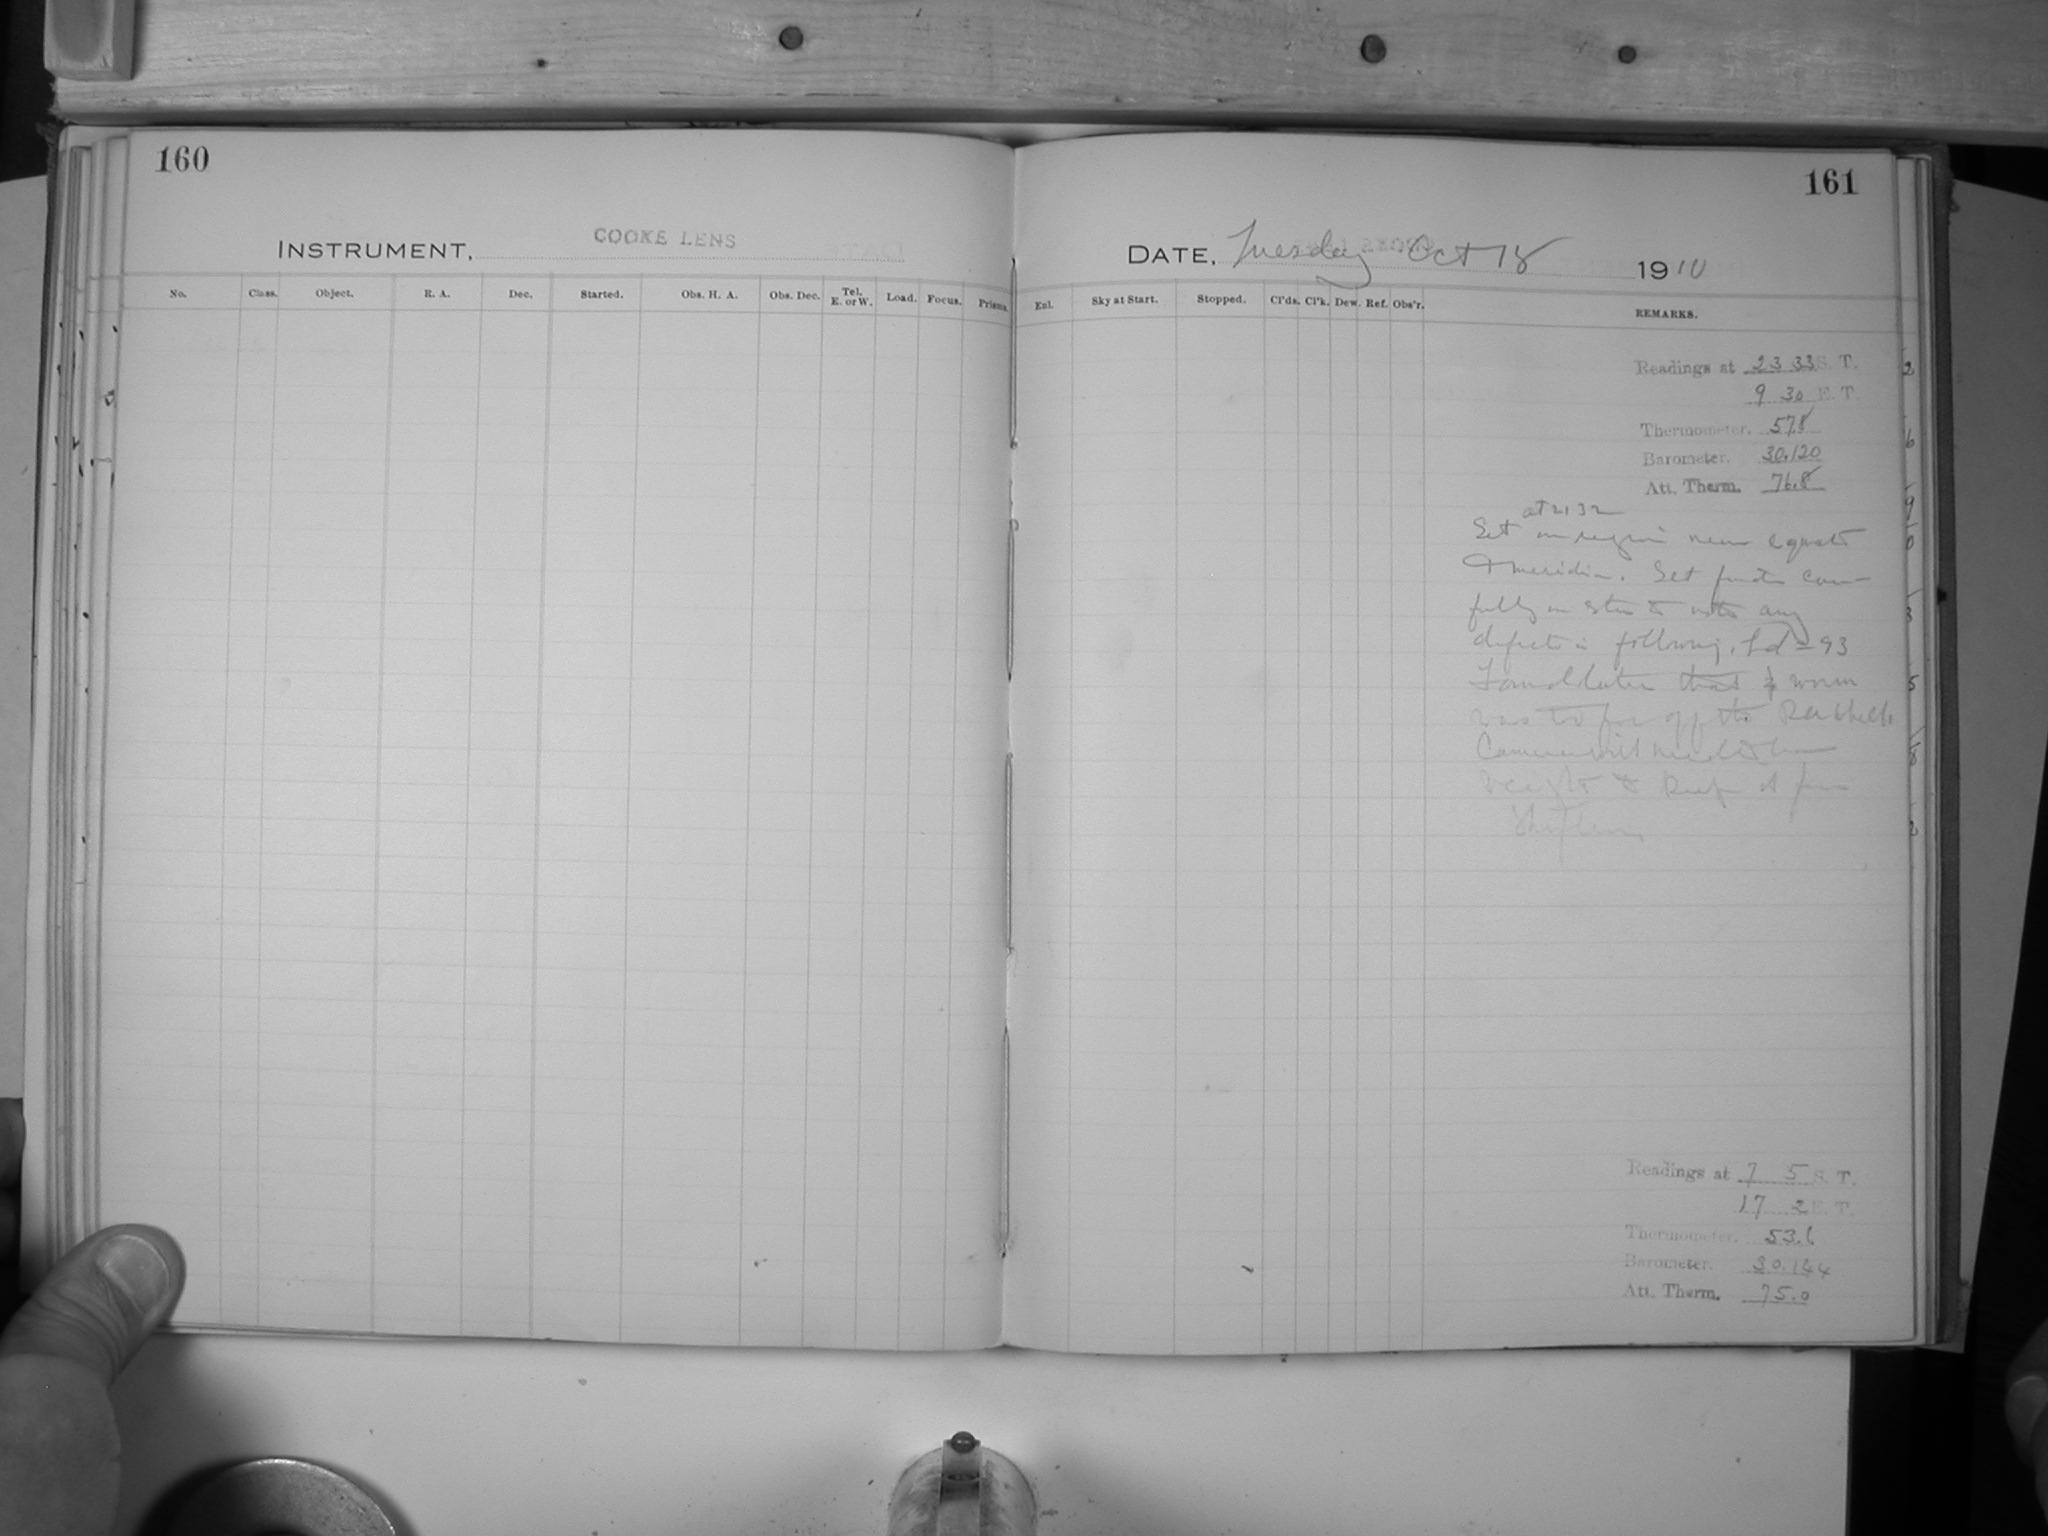 160
INSTRUMENT, COOKE LENS
No. Class. Object. R. A. Dec. Started. Obs. H. A. Obs. Dec. Tel. E. or W. Load. Focus. Prisms.
161
DATE, Tuesday Oct 18 1910
Enl. Sky at Start. Stopped. Cl'ds. Cl'k. Dew. Ref. Obs'r. REMARKS.
Readings at 23 33 S. T.
9 30 E. T.
Thermometer. 57.8
Barometer. 30.120
Att. Therm. 76.8
at 21 32
Set on region near equator
& meridian. Set
fully on star to note any
defects in following. Ld = 93
that worm
was too far off the
Camera will need to have
weights to keep it from
shifting
Readings at 7 5 S. T.
17 2 E. T.
Thermometer. 53.6
Barometer. 30.144
Att. Therm. 75.0